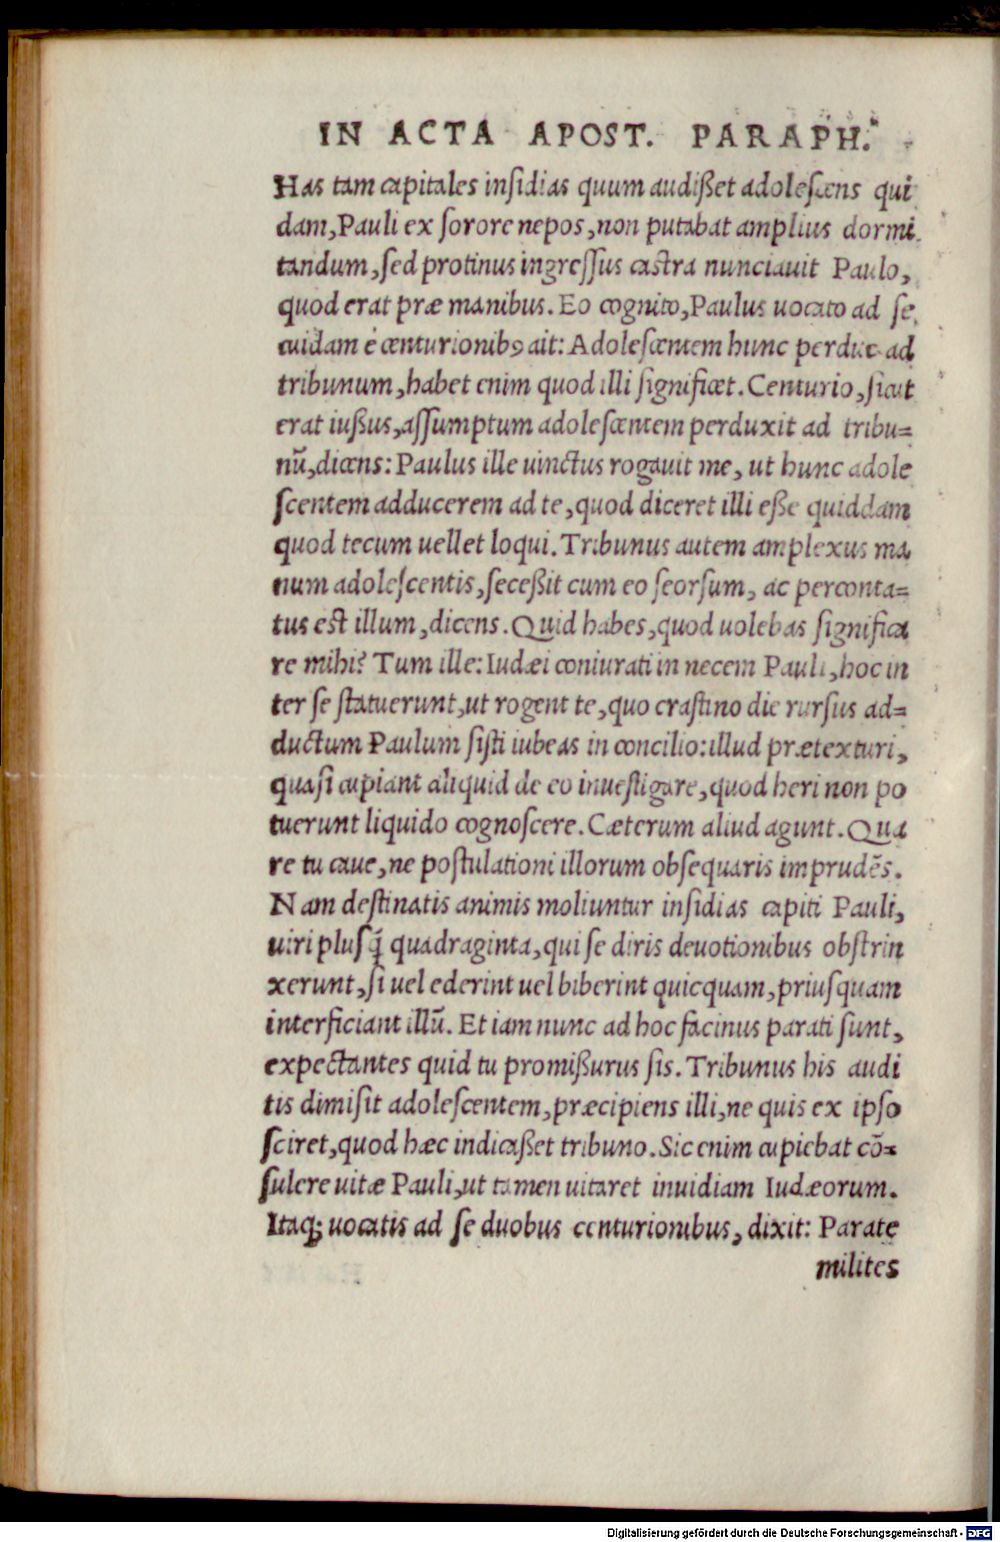 IN ACTA APOST. PARAPH.
Has tam capitales inſidias quum audißet adoleſcens qui
dam, Pauli ex ſorore nepos, non putabat amplius dormi
tandum, ſed protinus ingreſſus caſtra nunciauit Paulo,
quod erat præ manibus. Eo cognito, Paulus uocato ad ſe
cuidam è centurionibꝰ ait: Adoleſcentem hunc perduc ad
tribunum, habet enim quod illi ſignificet. Centurio, ſicut
erat iußus, aſſumptum adoleſcentem perduxit ad tribu=
nū, dicens: Paulus ille uinctus rogauit me, ut hunc adole
ſcentem adducerem ad te, quod diceret illi eße quiddam
quod tecum uellet loqui. Tribunus autem amplexus ma
num adoleſcentis, ſeceßit cum eo ſeorſum, ac perconta=
tus eſt illum, dicens. Quid habes, quod uolebas ſignifica
re mihi? Tum ille: Iudæi coniurati in necem Pauli, hoc in
ter ſe ſtatuerunt, ut rogent te, quo craſtino die rurſus ad=
ductum Paulum ſiſti iubeas in concilio: illud prætexturi,
quaſi cupiant aliquid de eo inueſtigare, quod heri non po
tuerunt liquido cognoſcere. Cæterum aliud agunt. Qua
re tu caue, ne poſtulationi illorum obſequaris imprudēs.
Nam deſtinatis animis moliuntur inſidias capiti Pauli,
uiri pluſq̄ quadraginta, qui ſe diris deuotionibus obſtrin
xerunt, ſi uel ederint uel biberint quicquam, priuſquam
interficiant illū. Et iam nunc ad hoc facinus parati ſunt,
expectantes quid tu promißurus ſis. Tribunus his audi
tis dimiſit adoleſcentem, præcipiens illi, ne quis ex ipſo
ſciret, quod hæc indicaßet tribuno. Sic enim cupiebat cō=
ſulere uitæ Pauli, ut tamen uitaret inuidiam Iudæorum.
Itaq; uocatis ad ſe duobus centurionibus, dixit: Parate
milites
Digitalisierung gefördert durch die Deutsche Forschungsgemeinschaft - DFG